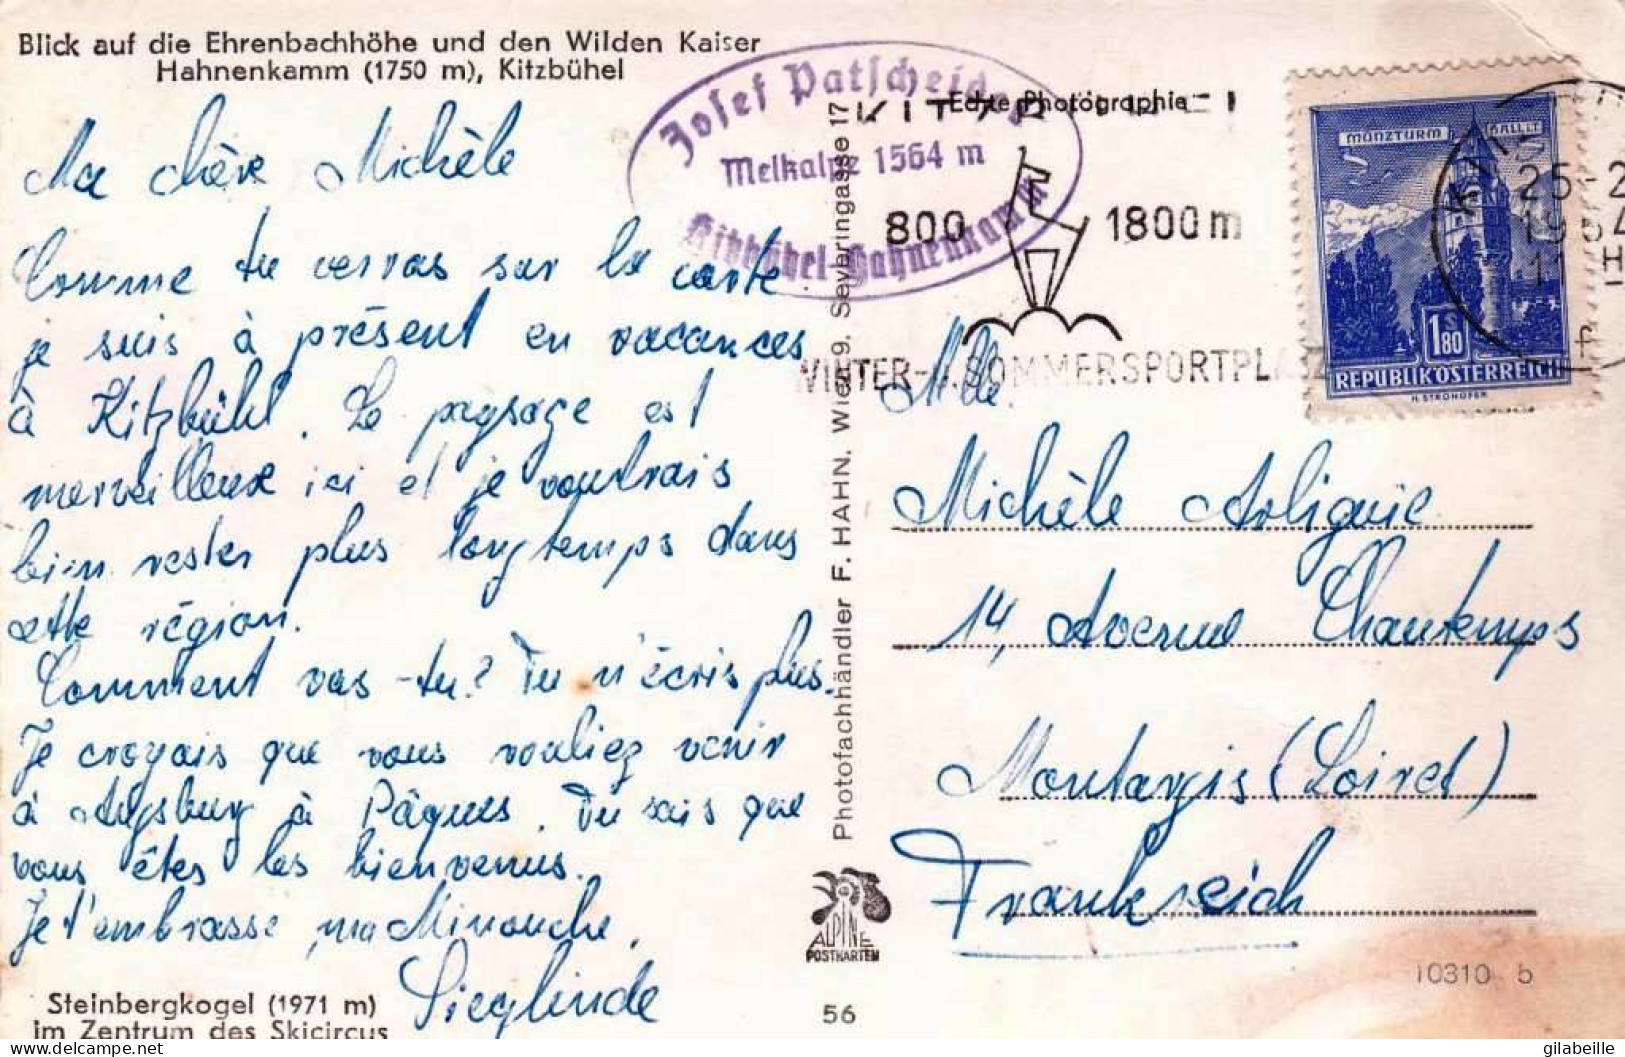 Blick auf die Ehrenbachhöhe und den Wilden Kaiser
Hahnenkamm (1750 m), Kitzbühel
Ma chère Michèle
Comme tu verras sur la carte
je suis à présent en vacances
à Kitzbühl. Le paysage est
merveilleux ici et je voudrais
bien rester plus longtemps dans
cette région.
Comment vas-tu? Tu n'écris plus.
Je croyais que vous vouliez venir
à Augsburg à Pâques. Tu sais que
vous êtes les bienvenus.
Je t'embrasse, ma Minouche,
Sieglinde
Steinbergkogel (1971 m)
im Zentrum des Skicircus
Josef Patscheider
Melkalpe 1564 m
Kitzbühel-Hahnenkamm
Echte Photographie
800 1800 m
WINTER- u. SOMMERSPORTPLATZ
MÜNZTURM HALL I.T.
1.80 S
REPUBLIK ÖSTERREICH
H. STROHOFER
25-2
11 H
Photofachhändler F. HAHN, Wien 9, Severingasse 17
Mlle
Michèle Arliguie
14, Avenue Chautemps
Montargis (Loiret)
Frankreich
ALPINE
POSTKARTEN
56
10310 b
gilabeille